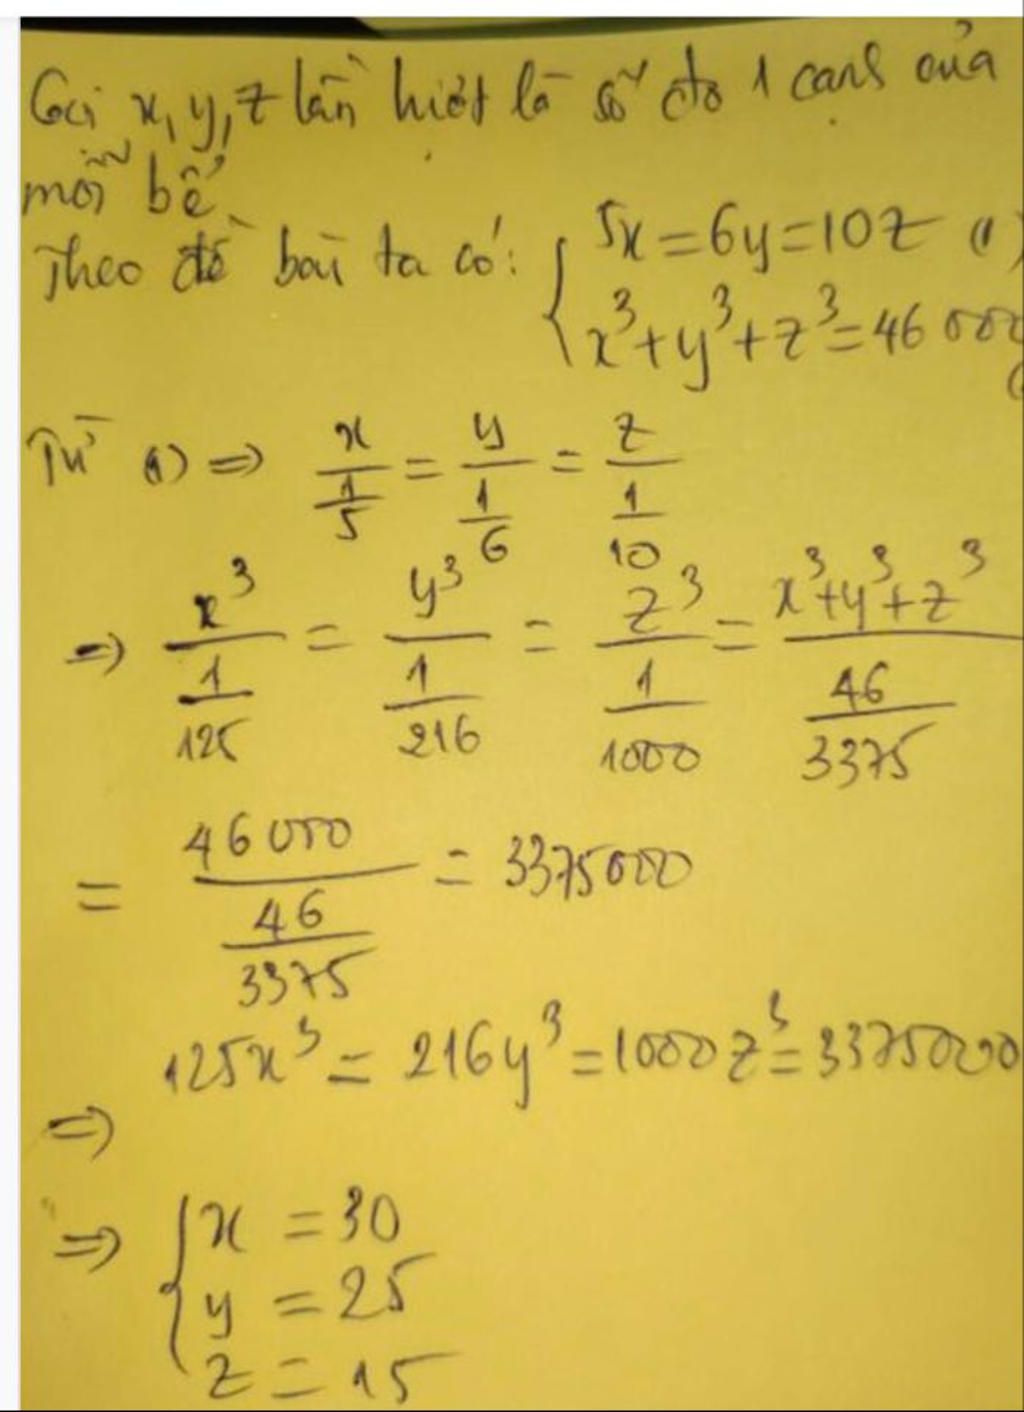 Gọi x, y, z lần lượt là số đo 1 cạnh của
mỗi bể.
Theo đề bài ta có: { 5x = 6y = 10z (1)
x³ + y³ + z³ = 46 000
Từ (1) ⇒ x/(1/5) = y/(1/6) = z/(1/10)
⇒ x³/(1/125) = y³/(1/216) = z³/(1/1000) = (x³+y³+z³)/(46/3375)
= 46000/(46/3375) = 3375000
⇒ 125x³ = 216y³ = 1000z³ = 3375000
⇒ { x = 30
y = 25
z = 15